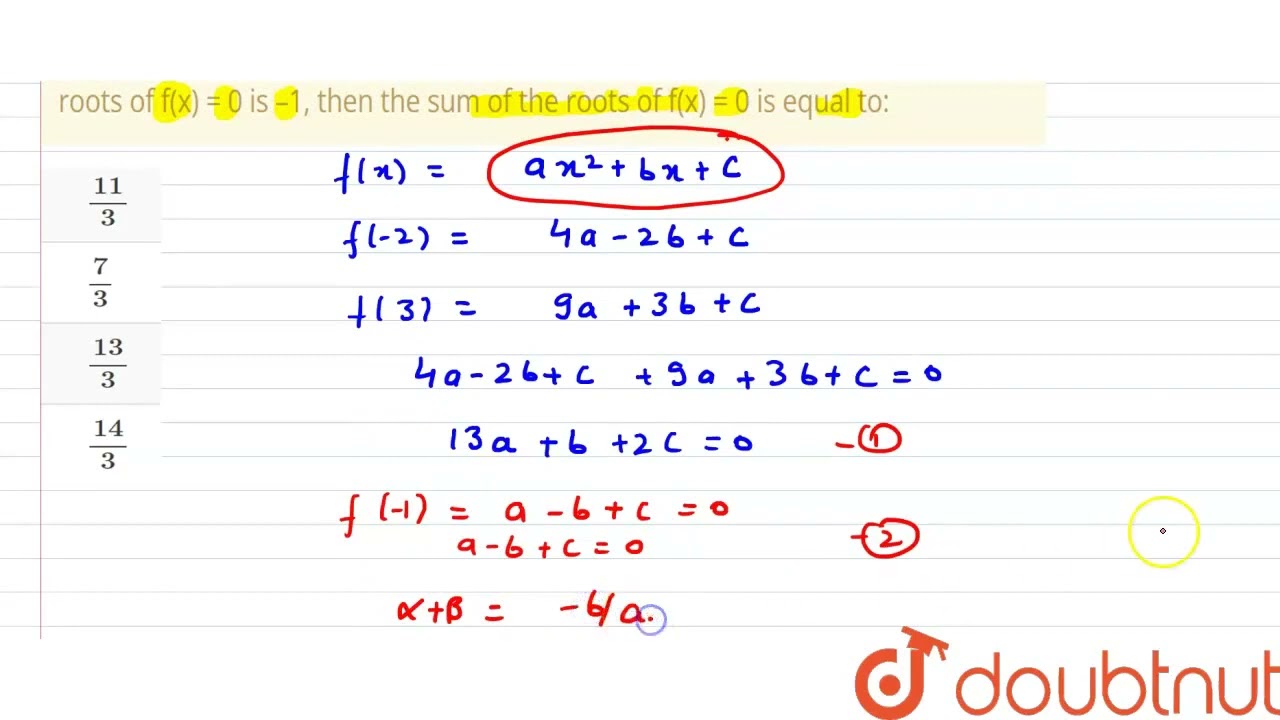 roots of f(x) = 0 is –1, then the sum of the roots of f(x) = 0 is equal to:
11/3
7/3
13/3
14/3
f(x) = ax² + bx + c
f(-2) = 4a - 2b + c
f(3) = 9a + 3b + c
4a - 2b + c + 9a + 3b + c = 0
13a + b + 2c = 0 - ①
f(-1) = a - b + c = 0
a - b + c = 0 - ②
α + β = -b/a.
doubtnut